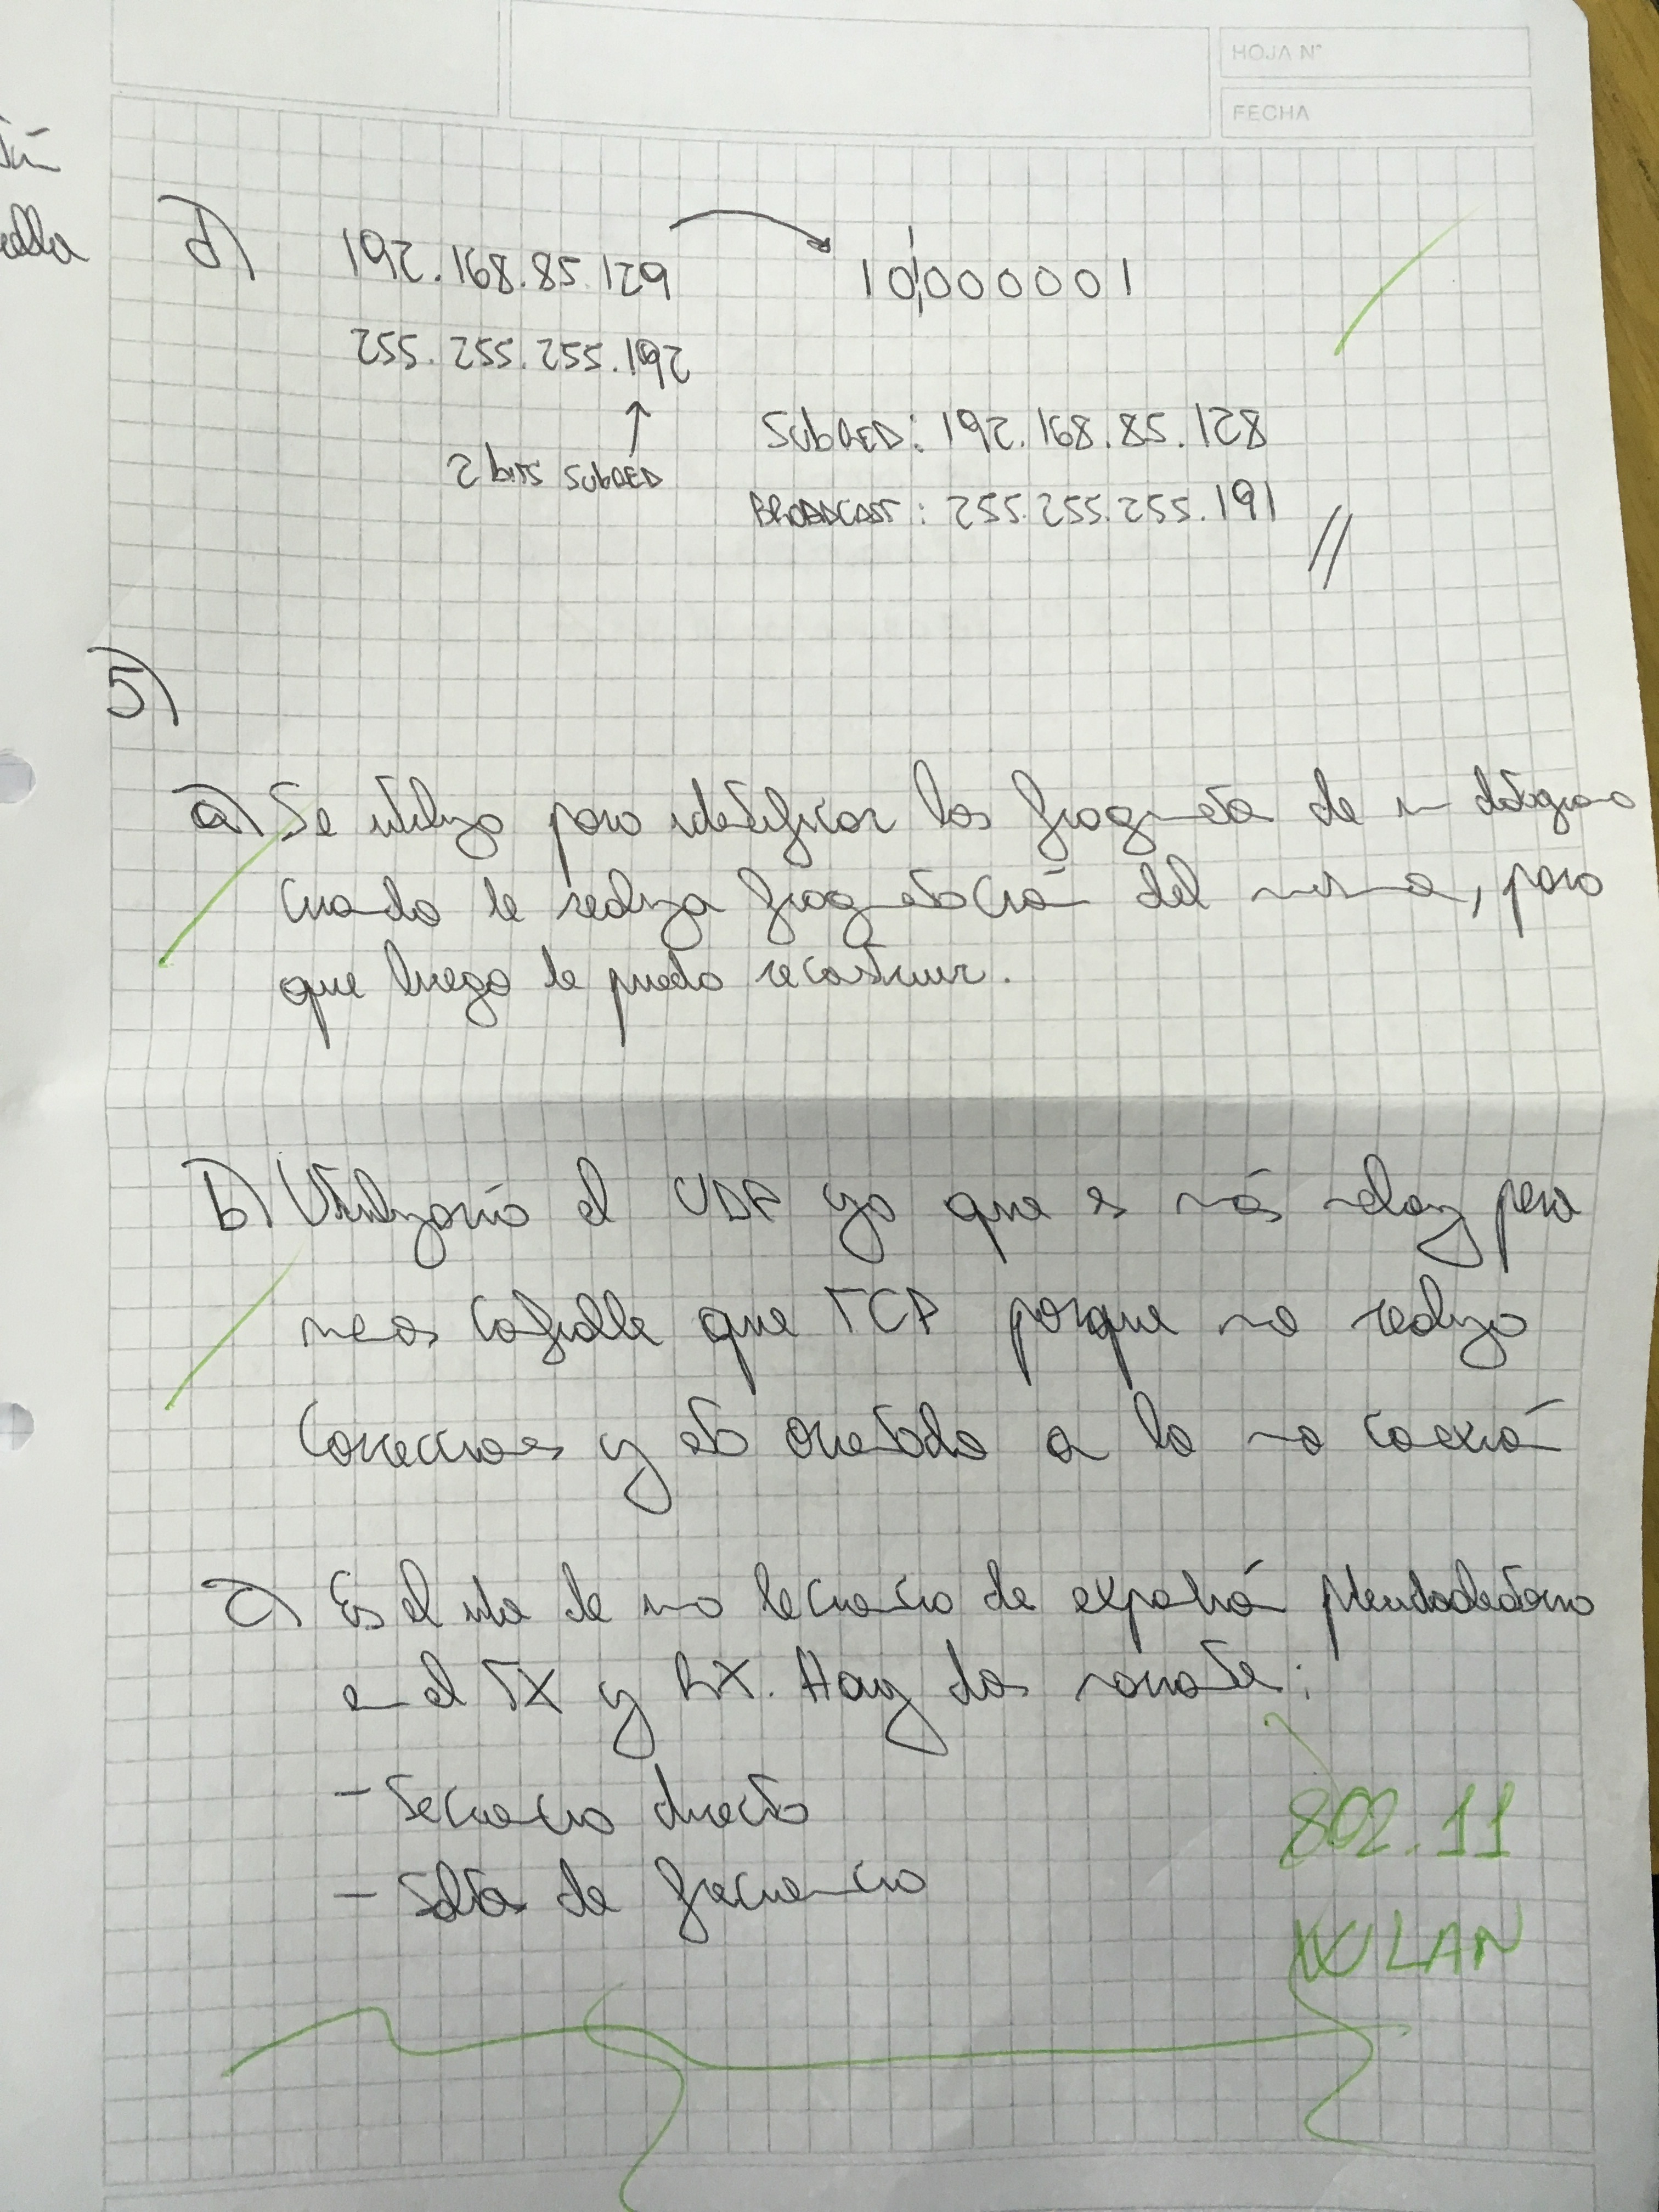 HOJA N°
FECHA
d) 192.168.85.129 10000001
255.255.255.192
2 bits subred
Subred: 192.168.85.128
Broadcast: 255.255.255.191
5)
a) Se utiliza para identificar los fragmentos de un datagrama
cuando se realiza fragmentación del mismo, para
que luego se pueda reconstruir.
b) Utilizaría el UDP ya que es más veloz pero
menos confiable que TCP porque no realiza
correcciones y está orientado a la no conexión
c) Es el uso de una secuencia de expansión pseudoaleatoria
en el TX y RX. Hay dos variantes:
- Secuencia directa
- Saltos de frecuencia
802.11
WLAN